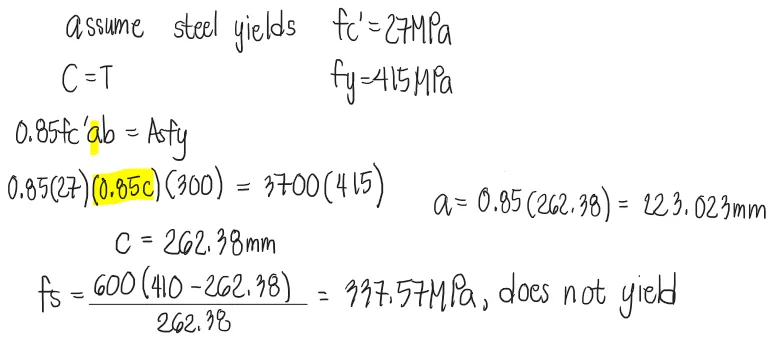 assume steel yields fc'=27MPa
C=T fy=415MPa
0.85fc'ab = Asfy
0.85(27)(0.85c)(300) = 3700(415)
a= 0.85(262.38) = 223.023mm
c = 262.38mm
fs = 600(410-262.38)/262.38 = 337.57MPa, does not yield